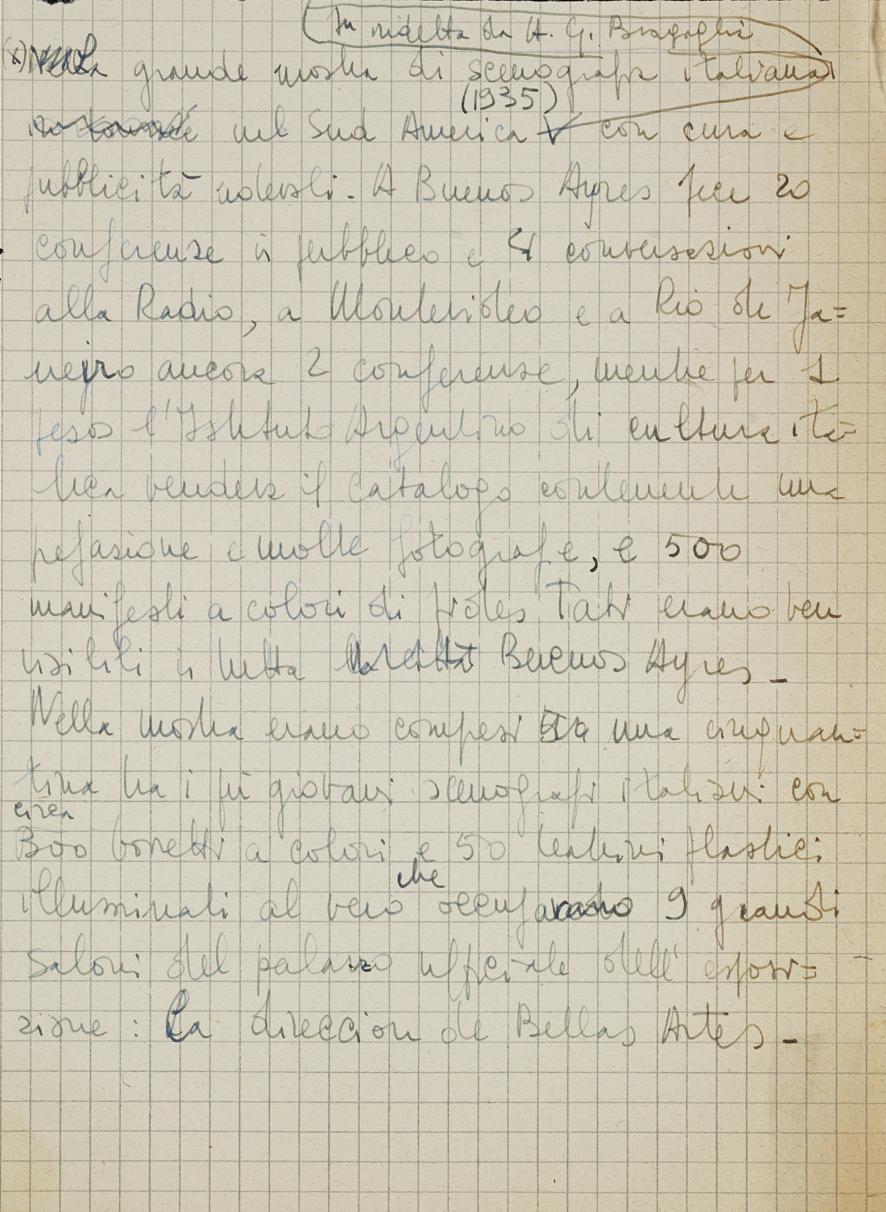 fu indetta da A. G. Bragaglia
(x) La grande mostra di scenografia italiana
(1935)
nel Sud America con cura e
pubblicità notevoli. A Buenos Ayres fece 20
conferenze in pubblico e 4 conversazioni
alla Radio, a Montevideo e a Rio de Ja=
nejro ancora 2 conferenze, mentre per 1
pesos l'Istituto Argentino di cultura ita=
lica vendeva il catalogo contenente una
prefazione e molte fotografie, e 500
manifesti a colori di Tato erano ben
visibili in tutta Buenos Ayres_
Nella mostra erano compresi una cinquan=
tina tra i più giovani scenografi italiani con
circa
300 bozzetti a colori e 50 teatrini plastici
che
illuminati al vero occupavano 9 grandi
Saloni del palazzo ufficiale dell'esposi=
zione: La direccion de Bellas Artes_